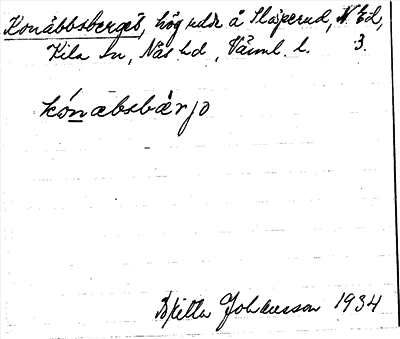 Konäbbsberget, hög udde å Slöperud, N. Ed,
Kila sn, Näs hd, Värml. l. 3.
kónabsbärjo
Johansson 1934